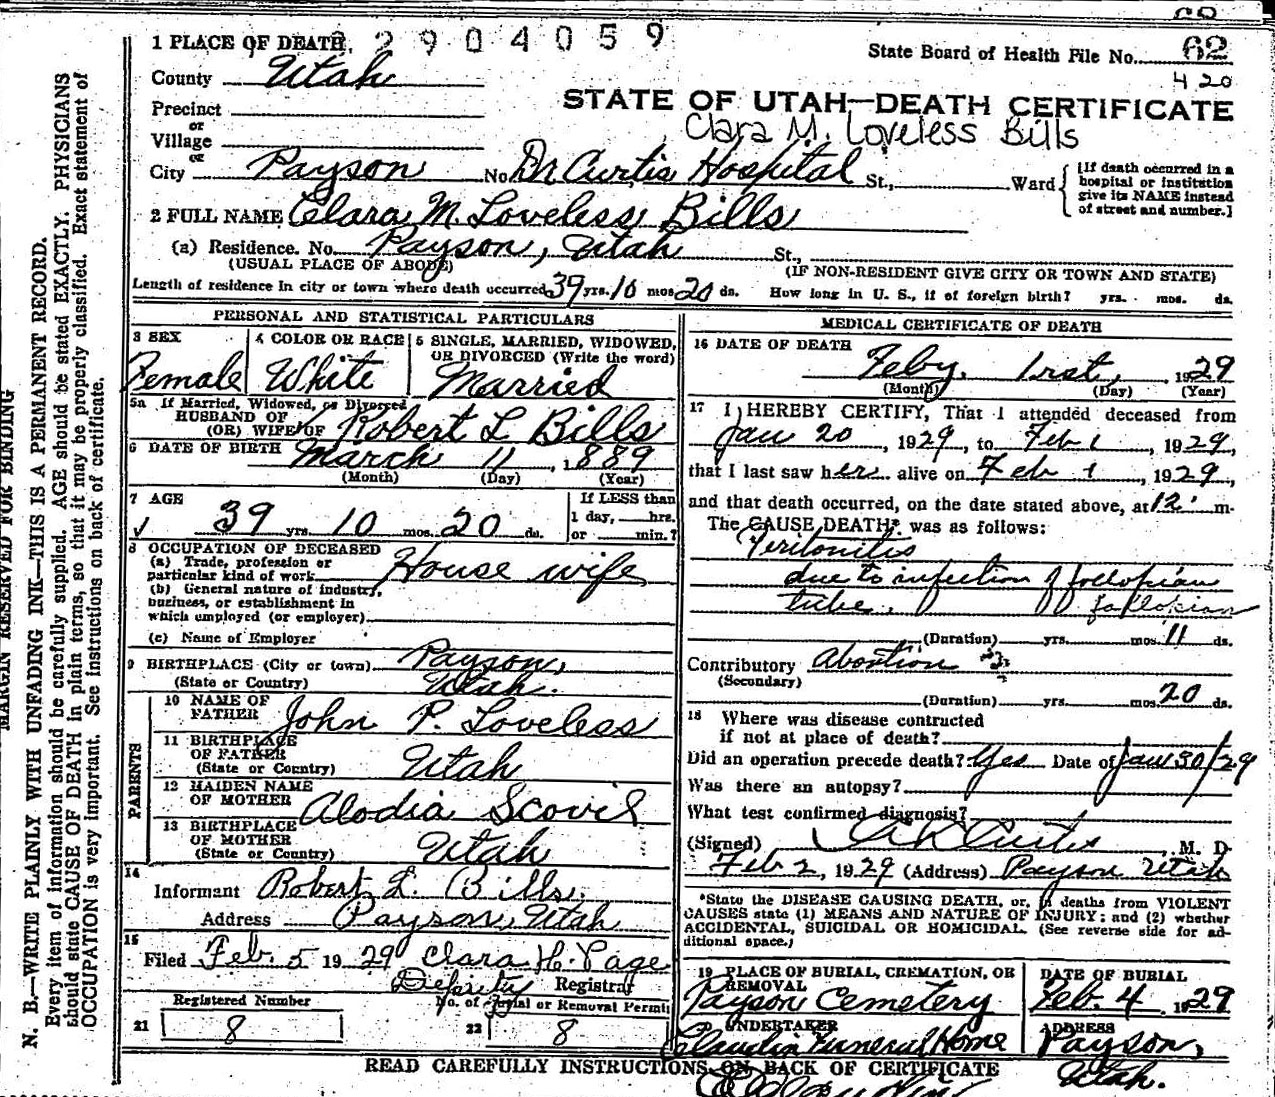 2904059
1 PLACE OF DEATH
State Board of Health File No. 62
County Utah
420
Precinct
STATE OF UTAH—DEATH CERTIFICATE
or
Village
Clara M. Loveless Bills
or
City Payson No. Dr Curtis Hospital St., Ward
[If death occurred in a
hospital or institution
give its NAME instead
of street and number.]
2 FULL NAME Clara M. Loveless Bills
(a) Residence. No. Payson, Utah St.,
(USUAL PLACE OF ABODE) (IF NON-RESIDENT GIVE CITY OR TOWN AND STATE)
Length of residence in city or town where death occurred 39 yrs. 10 mos 20 ds. How long in U. S., if of foreign birth? yrs. mos. ds.
PERSONAL AND STATISTICAL PARTICULARS
3 SEX
Female
4 COLOR OR RACE
White
5 SINGLE, MARRIED, WIDOWED,
OR DIVORCED (Write the word)
Married
5a If Married, Widowed, or Divorced
HUSBAND OF
(OR) WIFE OF Robert L Bills
6 DATE OF BIRTH March 11, 1889
(Month) (Day) (Year)
7 AGE
39 yrs. 10 mos. 20 ds.
If LESS than
1 day, hrs.
or min.?
8 OCCUPATION OF DECEASED
(a) Trade, profession or
particular kind of work House wife
(b) General nature of industry,
business, or establishment in
which employed (or employer)
(c) Name of Employer
9 BIRTHPLACE (City or town) Payson,
(State or Country) Utah.
PARENTS
10 NAME OF
FATHER John P. Loveless
11 BIRTHPLACE
OF FATHER
(State or Country) Utah
12 MAIDEN NAME
OF MOTHER Alodia Scovil
13 BIRTHPLACE
OF MOTHER
(State or Country) Utah
14
Informant Robert L. Bills.
Address Payson, Utah
15
Filed Feb. 5 1929 Clara H. Page
Deputy Registrar
Registered Number
21 8
No. of Burial or Removal Permit
22 8
MEDICAL CERTIFICATE OF DEATH
16 DATE OF DEATH
Feby. 1rst, 1929
(Month) (Day) (Year)
17 I HEREBY CERTIFY, That I attended deceased from
Jan 20, 1929, to Feb 1, 1929,
that I last saw her alive on Feb 1, 1929,
and that death occurred, on the date stated above, at 12 m.
The CAUSE DEATH* was as follows:
Peritonitis
due to infection of follopian
tube. fallopian
(Duration) yrs. mos. 11 ds.
Contributory Abortion
(Secondary)
(Duration) yrs. mos. 20 ds.
18 Where was disease contracted
if not at place of death?
Did an operation precede death? Yes Date of Jan 30/29
Was there an autopsy?
What test confirmed diagnosis?
(Signed) Curtis, M. D.
Feb 2, 1929 (Address) Payson Utah
*State the DISEASE CAUSING DEATH, or, in deaths from VIOLENT
CAUSES state (1) MEANS AND NATURE OF INJURY; and (2) whether
ACCIDENTAL, SUICIDAL OR HOMICIDAL. (See reverse side for ad-
ditional space.)
19 PLACE OF BURIAL, CREMATION, OR
REMOVAL
Payson Cemetery
DATE OF BURIAL
Feb. 4, 1929
20 UNDERTAKER
Claudin Funeral Home
ADDRESS
Payson,
Utah.
READ CAREFULLY INSTRUCTIONS ON BACK OF CERTIFICATE
MARGIN RESERVED FOR BINDING
N. B.—WRITE PLAINLY WITH UNFADING INK—THIS IS A PERMANENT RECORD.
Every item of information should be carefully supplied. AGE should be stated EXACTLY. PHYSICIANS
should state CAUSE OF DEATH in plain terms, so that it may be properly classified. Exact statement of
OCCUPATION is very important. See instructions on back of certificate.